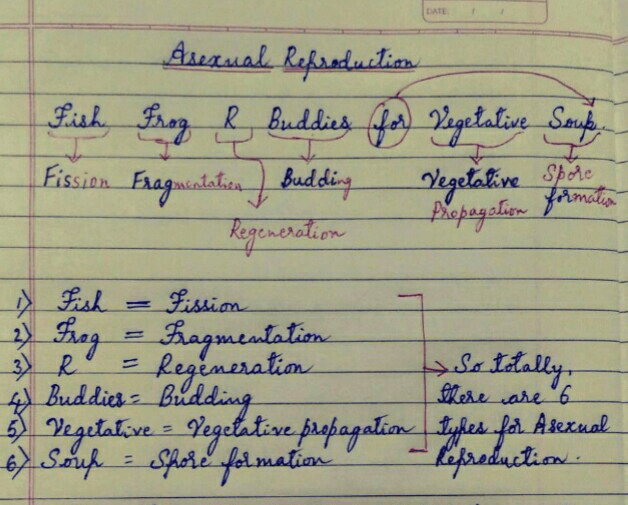 DATE: / /
Asexual Reproduction
Fish Frog R Buddies for Vegetative Soup.
Fission Fragmentation Budding Vegetative Propagation Spore formation
Regeneration
1) Fish = Fission
2) Frog = Fragmentation
3) R = Regeneration
4) Buddies = Budding
5) Vegetative = Vegetative propagation
6) Soup = Spore formation
So totally,
there are 6
types for Asexual
Reproduction.